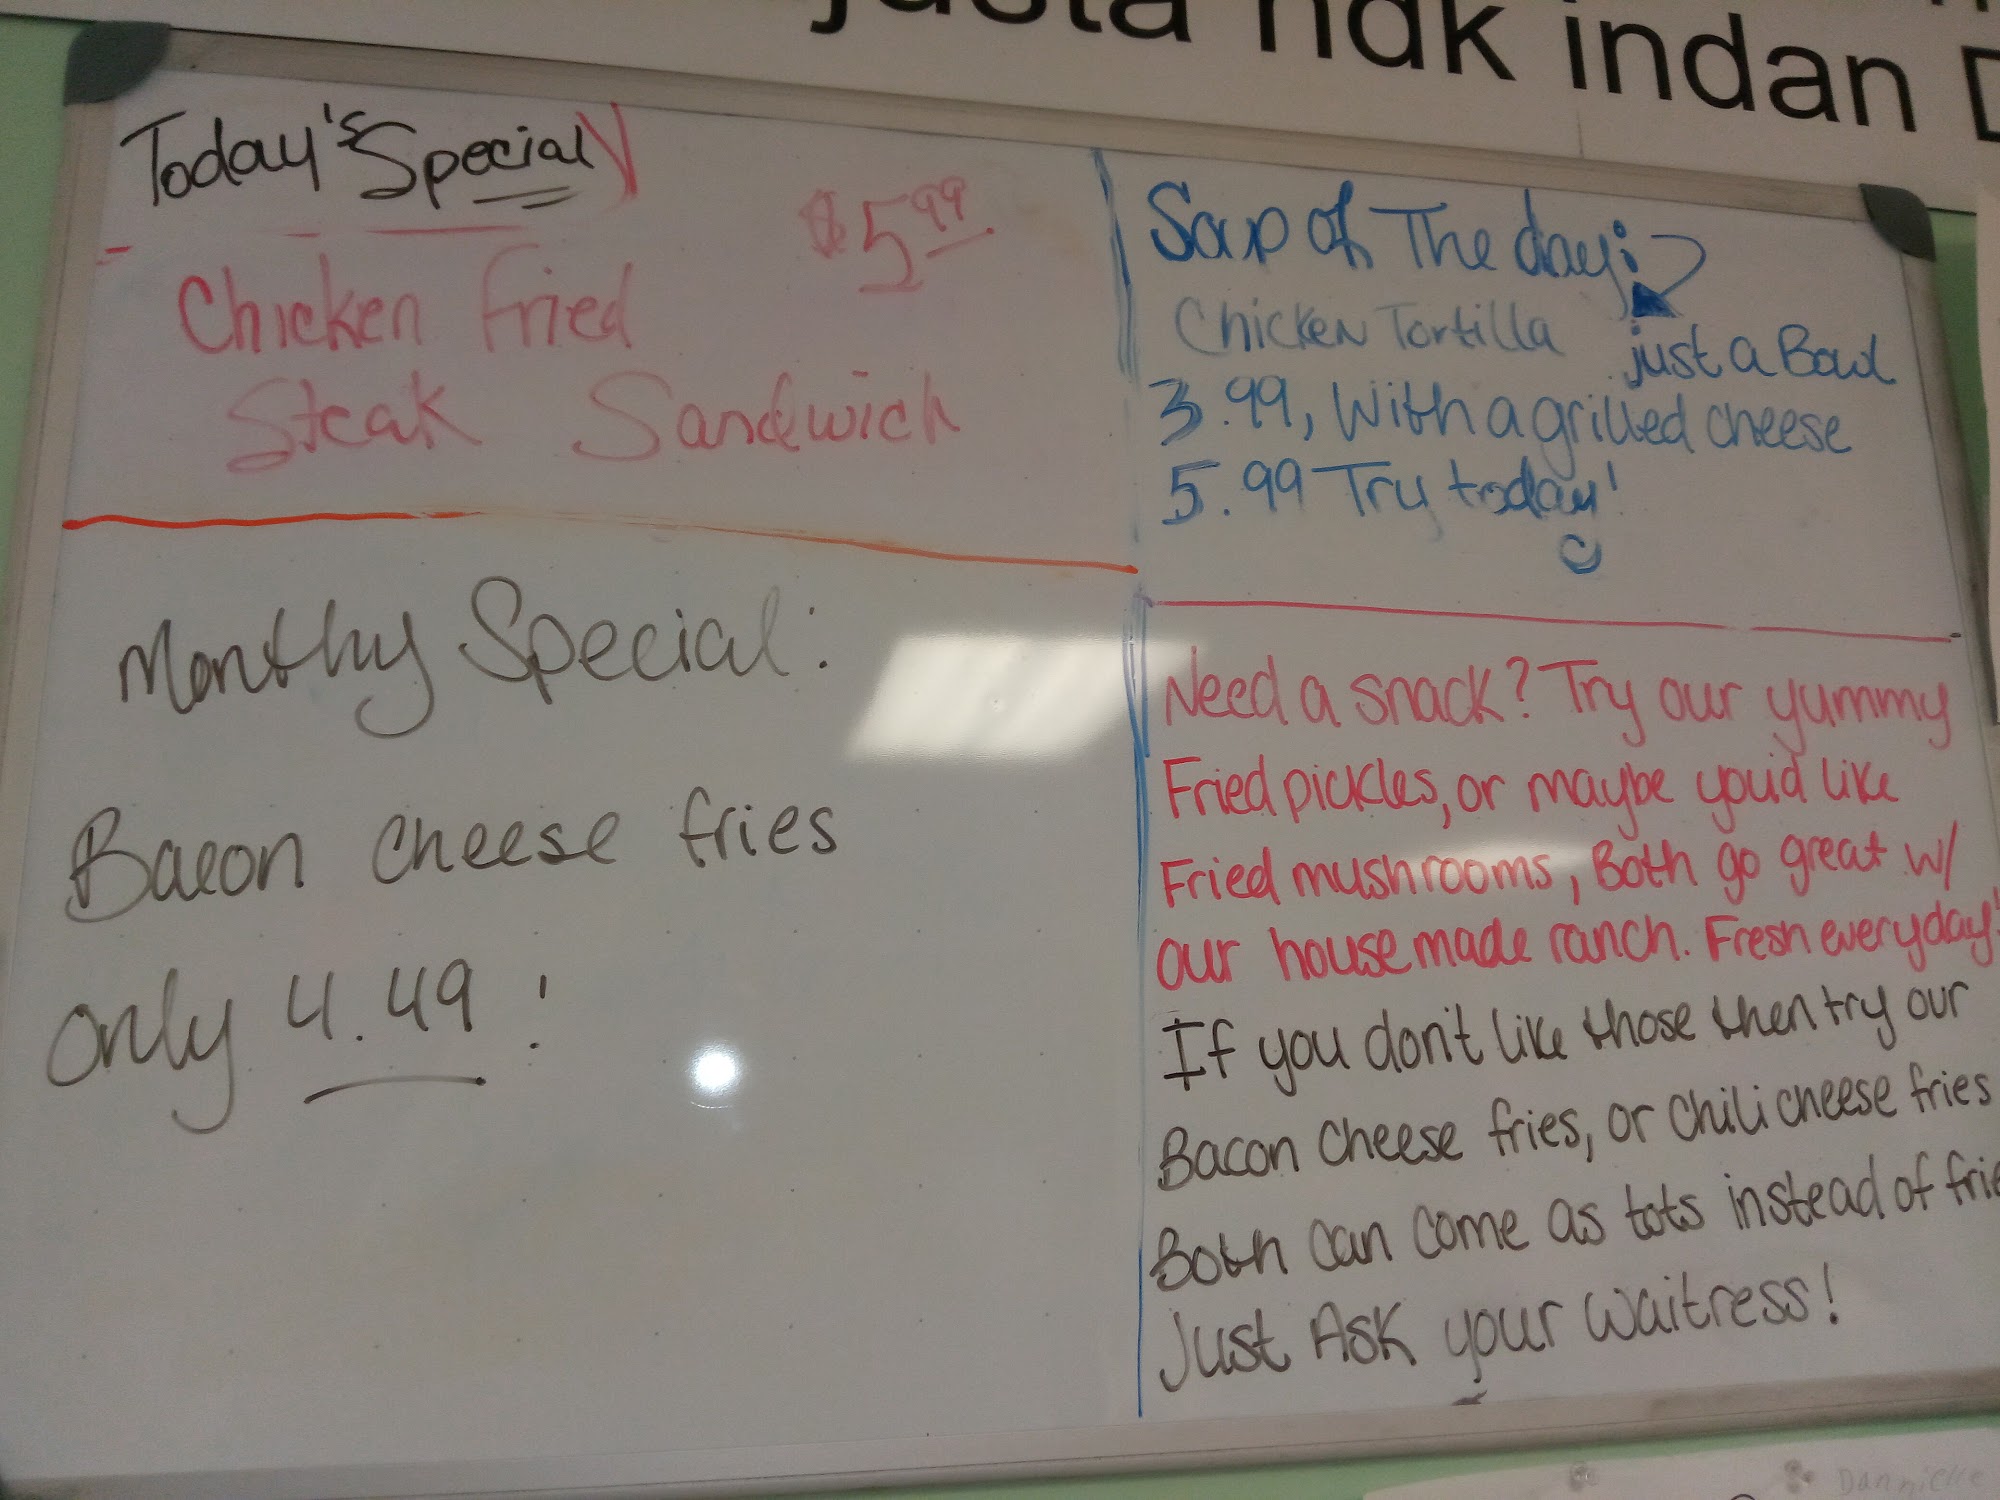 justa hdk indan
Today's Special
$5.99
Chicken Fried
Steak Sandwich
Soup of The day:
Chicken Tortilla
just a Bowl
3.99, With a grilled cheese
5.99 Try today!
Monthy Special:
Bacon cheese fries
only 4.49 !
Need a snack? Try our yummy
Fried pickles, or maybe you'd like
Fried mushrooms, Both go great w/
our house made ranch. Fresh everyday!
If you don't like those then try our
Bacon Cheese fries, or Chili cheese fries
Both can come as tots instead of frie
Just Ask your waitress!
Dannielle